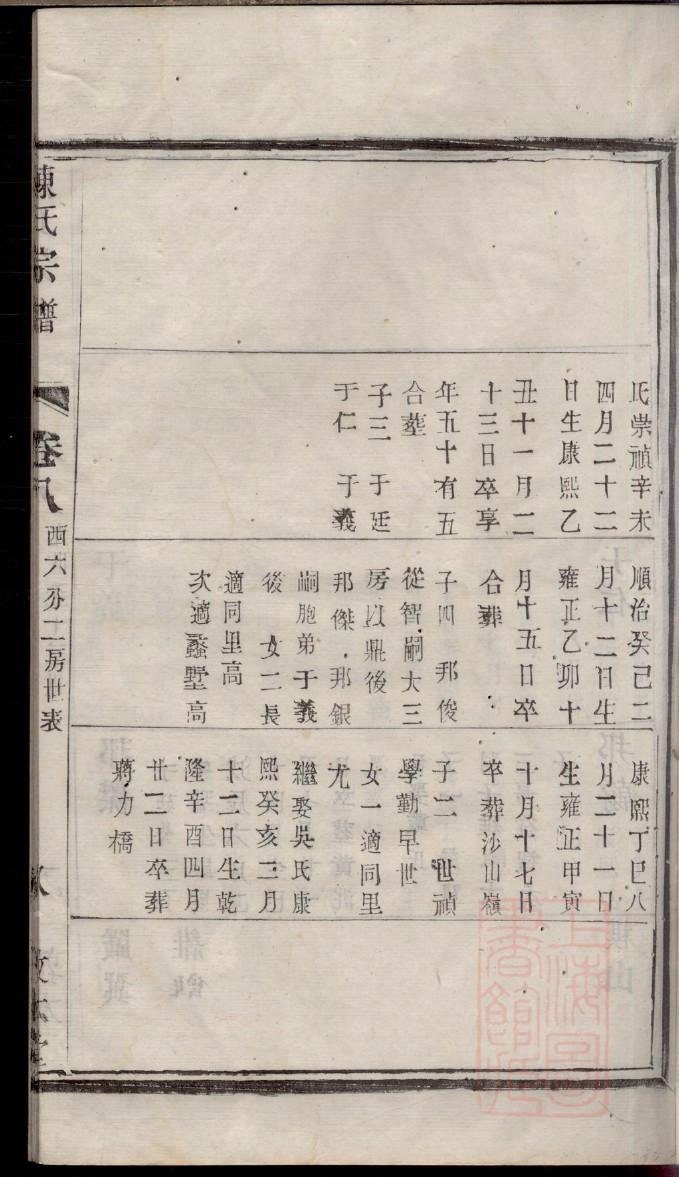 氏崇禎辛未
四月二十二
日生康熙乙
丑十一月二
十三日卒享
年五十有五
合葬
子三　于廷
于仁　于義
順治癸巳二
月十二日生
雍正乙卯十
月十五日卒
合葬
子四　邦俊
從智嗣大三
房以鼎後
邦傑　邦銀
嗣胞弟于義
後　女二長
適同里高
次適蠡墅高
康熙丁巳八
月二十一日
生雍正甲寅
十月十七日
卒葬沙山嶺
子二　世禎
學勤早世
女一適同里
尤
繼娶吳氏康
熙癸亥三月
十二日生乾
隆辛酉四月
廿二日卒葬
蔣力橋
陳氏宗譜
卷八
西六分二房世表
上海圖書館藏